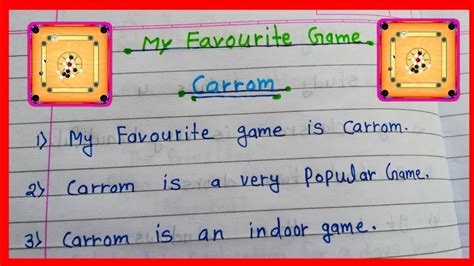 My Favourite Game
Carrom
1) My Favourite game is Carrom.
2) Carrom is a very Popular Game.
3) Carrom is an indoor game.